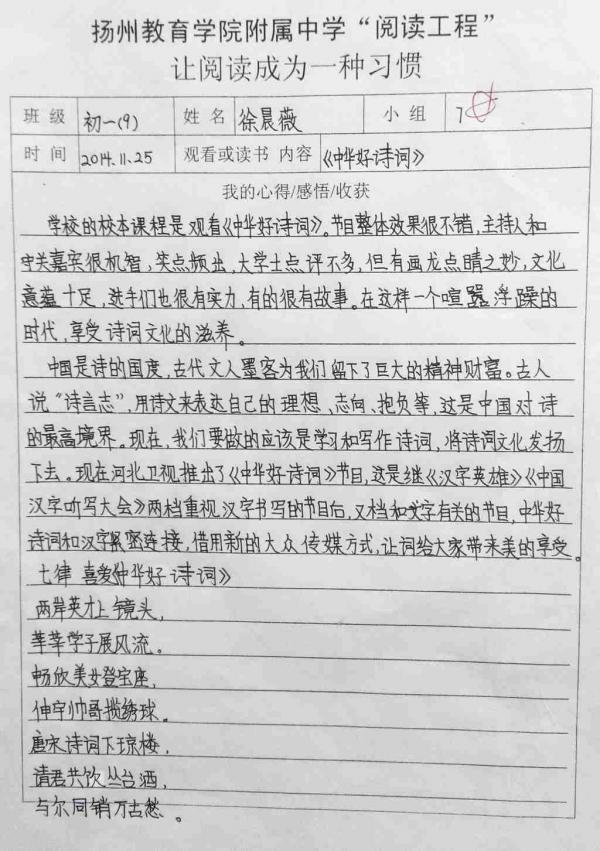 扬州教育学院附属中学“阅读工程”
让阅读成为一种习惯
班级 初一(9) 姓名 徐晨薇 小组 7
时间 2014.11.25 观看或读书 内容 《中华好诗词》
我的心得/感悟/收获
学校的校本课程是观看《中华好诗词》。节目整体效果很不错,主持人和
守关嘉宾很机智,笑点频出,大学士点评不多,但有画龙点睛之妙,文化
意蕴十足,选手们也很有实力,有的很有故事。在这样一个喧嚣浮躁的
时代,享受诗词文化的滋养。
中国是诗的国度,古代文人墨客为我们留下了巨大的精神财富。古人
说“诗言志”,用诗文来表达自己的理想、志向、抱负等,这是中国对诗
的最高境界。现在,我们要做的应该是学习和写作诗词,将诗词文化发扬
下去。现在河北卫视推出了《中华好诗词》节目,这是继《汉字英雄》《中国
汉字听写大会》两档重视汉字书写的节目后,又档和文字有关的节目,中华好
诗词和汉字紧密连接,借用新的大众传媒方式,让词给大家带来美的享受。
七律 喜爱《中华好诗词》
两岸英才上镜头,
莘莘学子展风流。
畅欣美女登宝座,
伸宇帅哥揽绣球。
唐宋诗词下琼楼,
请君共饮丛台酒,
与尔同销万古愁。